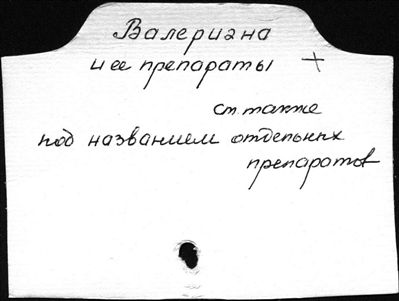 Валериана
и ее препараты +
см. также
под названием отдельных
препаратов